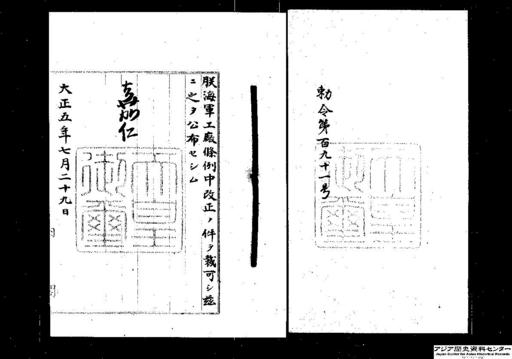 勅令第百九十一号
朕海軍工廠條例中改正ノ件ヲ裁可シ茲
ニ之ヲ公布セシム
嘉仁
大正五年七月二十九日
アジア歴史資料センター
Japan Center for Asian Historical Records